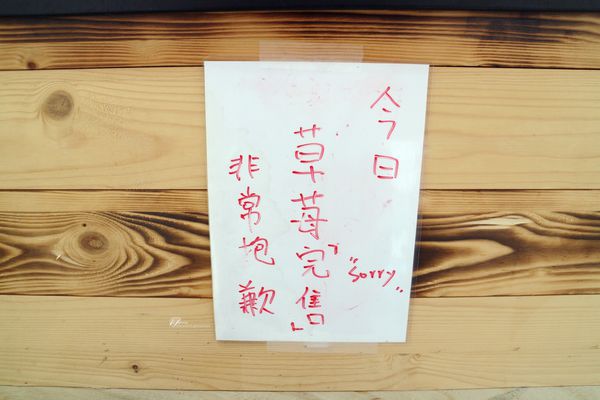 今日
草莓「完售」
非常抱歉
"Sorry"